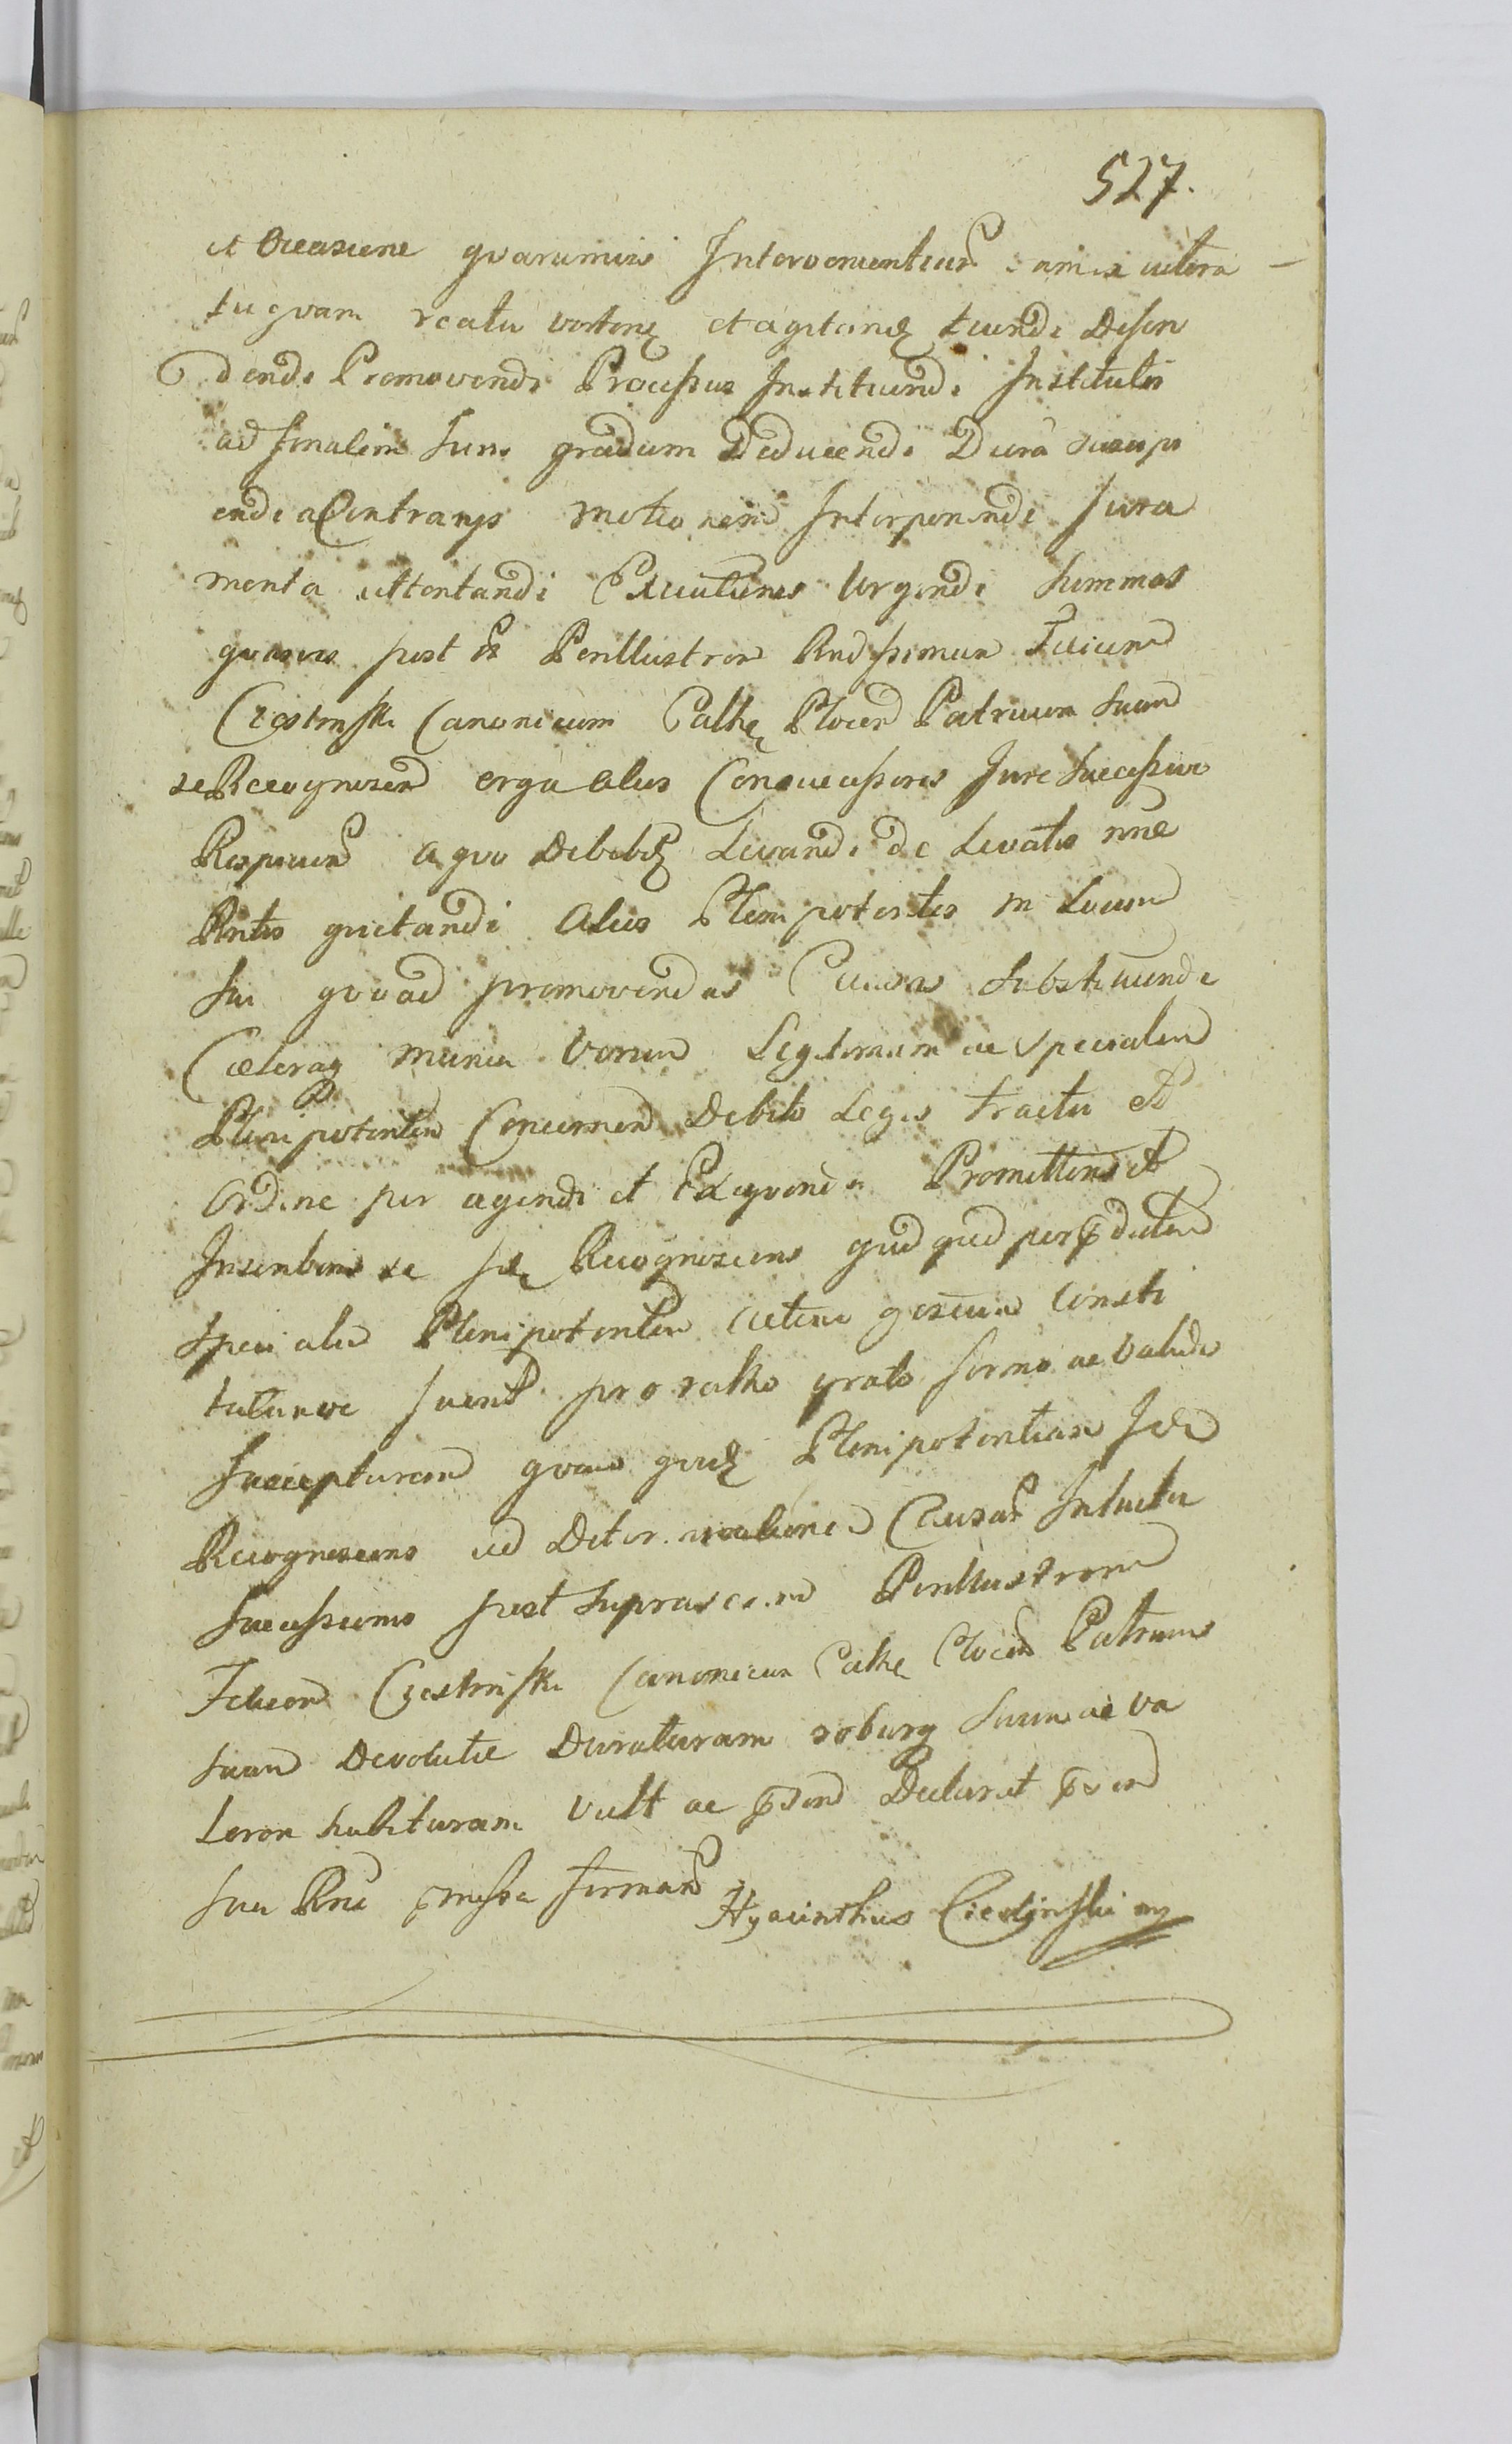 527.
et Occasione qvarumvis Intervenientium
tuqvam reatu verten et agitand tuendi Defen
dendi Promovendi Processus Instituendi Institutos
ad finalem Juris gradum Deducendi Dura suscipi
endi a Contrarys motionem Interponendi Jura
menta attentandi Executiones Urgendi Summas
qvasvis post Perillustrem Rndssimum Felicem
Czestinski Canonicum Cathe Plocen Patruum Suum
se Recognoscen erga alios Consuccessores Jure Successivo
Respicien a qvo Debebit Levandi de Levatis nne
Rntis qvietandi Alios Plenipotentes in Locum
Sui qvoad promovendas Causas Substituendi
Caeteraq munia Verum Legitimum ac Specialem
Plenipotentem Concernen Debito Legis tractu et
Ordine per agendi et Exeqvendi Promittens et
Inscribens se Recognoscens qvidqvid per
Specialem Plenipotentem actum gestum Consti
tutumve fuerit pro ratho grato firmo ac Valido
Suscepturum Plenipotentiam
Recognoscens ad Determinationem Causar Intuitu
Successionis post Suprascrm Perillustrem
Felicem Czestinski Canonicum Cathe Plocen Patruum
Suum Devolutae Duraturam roburq Suum ac va
lorem habituram Vult ac Declarat
Sua Rne firman
Hyacinthus Ciestynski mp